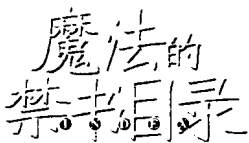 魔法的
禁书目录